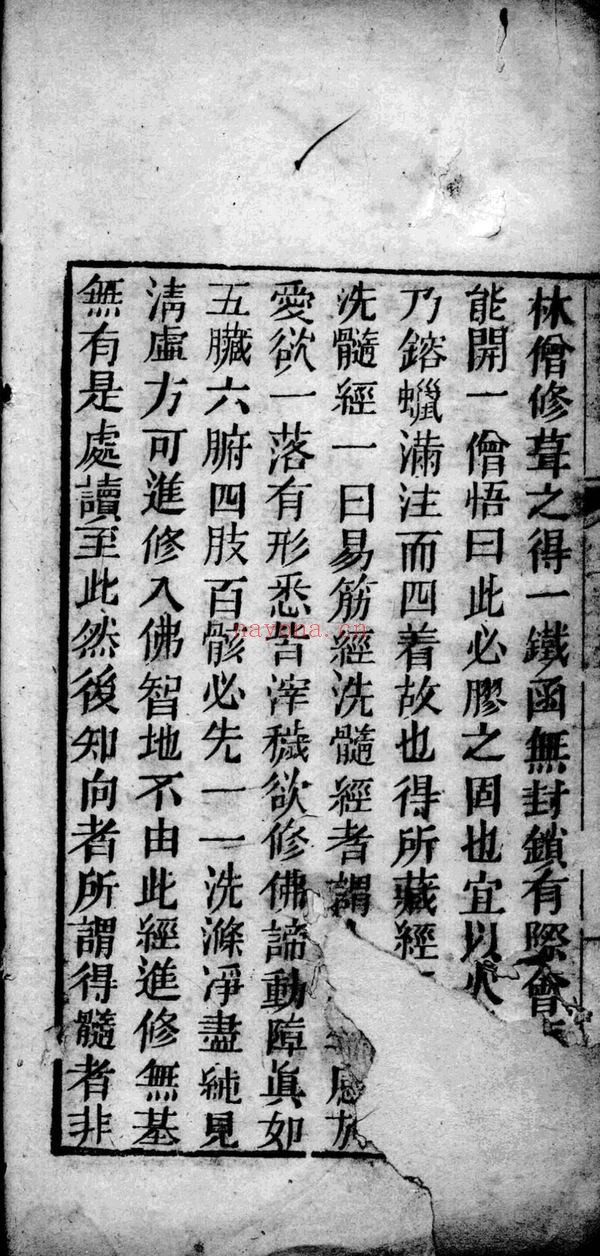 林僧修葺之得一鐵函無封鎖有際會
能開一僧悟曰此必膠之固也宜以火
乃鎔蠟滿注而四着故也得所藏經
洗髓經一曰易筋經洗髓經者謂
愛欲一落有形悉皆滓穢欲修佛諦動障眞如
五臟六腑四肢百骸必先一一洗滌淨盡純見
淸虛方可進修入佛智地不由此經進修無基
無有是處讀至此然後知向者所謂得髓者非
nayona.cn